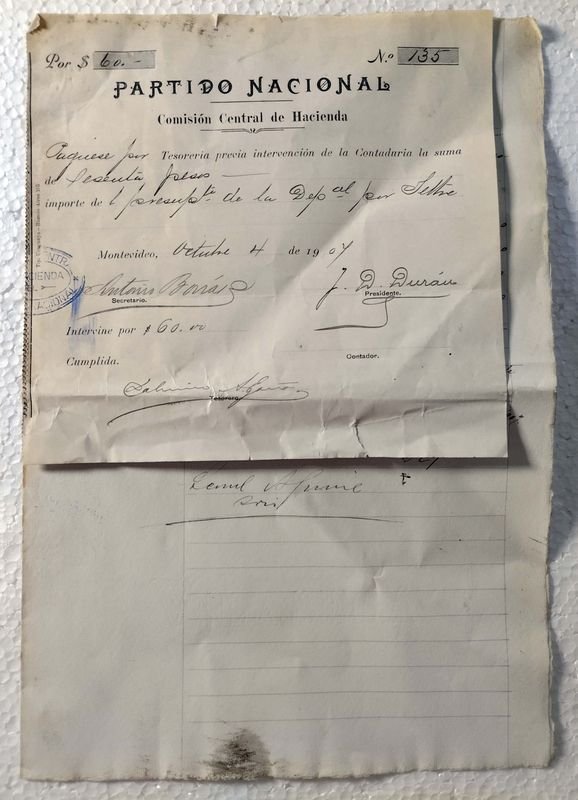 Por $ 60.- Nº 135
PARTIDO NACIONAL
Comisión Central de Hacienda
Páguese por Tesorería previa intervención de la Contaduría la suma
de Sesenta pesos
importe de presupto de la Depal por Setbre
Montevideo, Octubre 4 de 1907
Antonio Borrás
Secretario.
J. D. Durán
Presidente.
Intervine por $ 60.00
Cumplida.
Contador.
Tesorero.